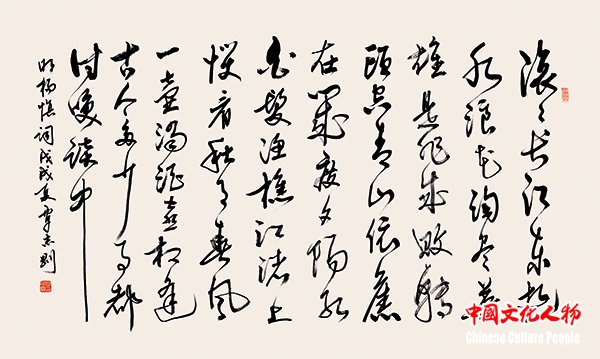 滚々长江东逝
水浪花淘尽英
雄是非成败转
头空青山依旧
在几度夕阳红
白发渔樵江渚上
惯看秋月春风
一壶浊酒喜相逢
古今多少事都
付笑谈中
明杨慎词戊戌夏
中國文化人物
Chinese Culture People